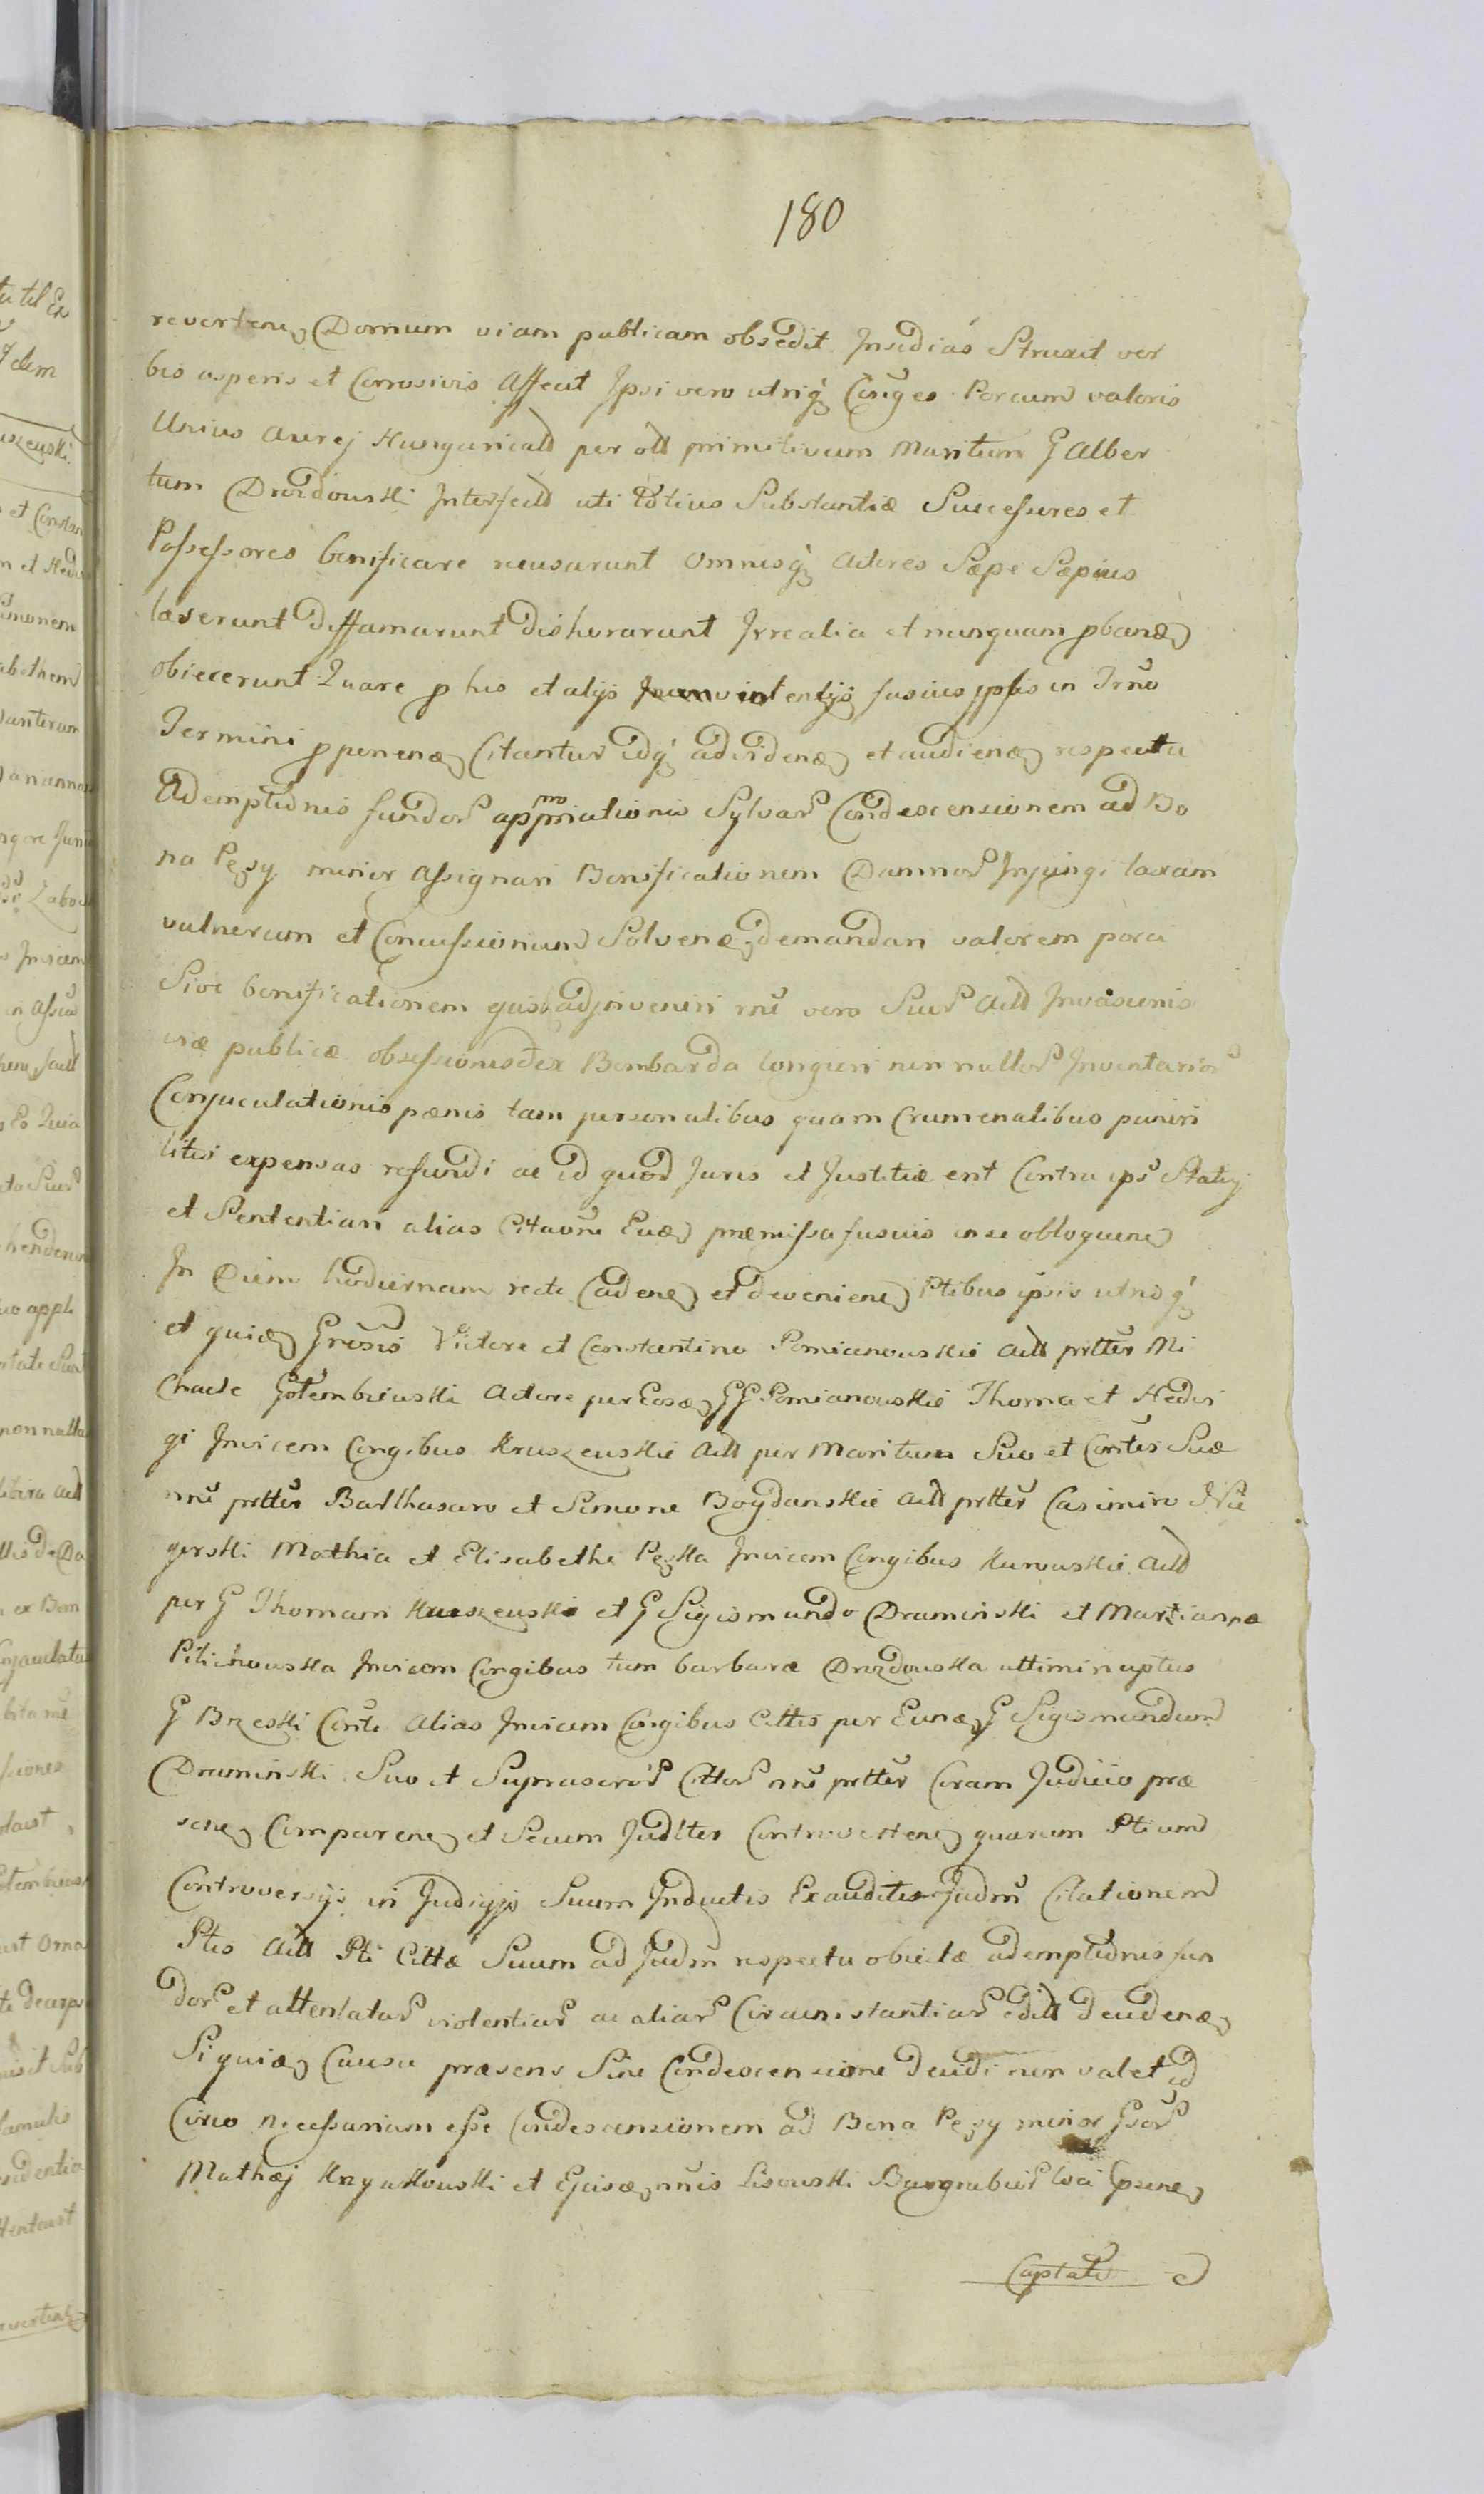 180
reverten, Domum viam publicam obsedit Insidias Struxit ver
bis asperis et Corrosivis Affecit Ipsi vero utriq; Cojuges Porcum valoris
Unius Aurej Hungaricall per oll primitivum Maritum G Alber
tum Drozdowski Interfectd uti totius Substantiæ Successores et
Possessores bonificare recusarunt omnesq; Actores Sæpe Sæpius
læserunt diffamarunt dishonorarunt Irrealia et nunquam pband
obiecerunt Quare p his et alijs fusius ipsis in Trno
Termini pponend Citantur idq; ad vidend et audiend respectu
Ademptionis fundor appropriationis Sylvar Condescensionem ad Bo
na Pęsy minor Assignari Bonificationem Damnor Injungi taxam
vulnerum et Concussionum Solvend demandari valorem porci
Sive bonificationem ejusd adjnveniri rnū vero Suor Actt Invasionis
viæ publicæ obsessionis ex Bombarda longiori non nullor Inventarior
Conjaculationis pænis tam personalibus quam Crumenalibus puniri
litis expensas refundi ac id quod Juris et Justitiæ erit Contra ips Statuj
et Sententiari alias Citaone Ead præmissa fusius in se obloquen
In Diem hodiernam recte Caden et devenien Ptibus ipsis utrisq;
et quid Grosis Victore et Constantino Pomianowskie Actt prtter Mi
chaele Gołembiewski Actore per Eosd GG Pomianowskie Thoma et Hedvi
gi Invicem Congibus Kruszewskie Actt per Maritum Suo et Cortis Suæ
nnē prtter Balthasaro et Simone Bogdanskie Actt prtter Casimiro Nie
gierski Mathia et Elisabetha Pęska Invicem Congibus Kurowskie Actt
per G Thomam Kruszewski et G Sigismundo Draminski et Martianna
Pilichowska Invicem Congibus tum barbaræ Drozdowska ultimi nuptus
G Brzeski Conte Alias Invicem Congibus Cittis per Eund G Sigismundum
Draminski Suo et Suprascror Cittor nnē prtter Coram Judicio præ
sen Comparen et Secum Judlter Controverten quarum Ptium
Controversijs in Judicijs Suum Inductis Exauditis Judm Citationem
Ptis Actt Pti Cittæ Suum ad Judm respectu obiectæ ademptionis fun
dor et attentatar violentiar ac aliar Circumstantiar edit decidend
Si quid Causa præsens Sine Condescensione decidi non valet id
Circo necessariam esse Condescensionem ad Bona Pęsy minor Gsor
Mathæj Krzykowski et Ejusd nnis Lisowski Burgrabior loci Gpsen
Captati